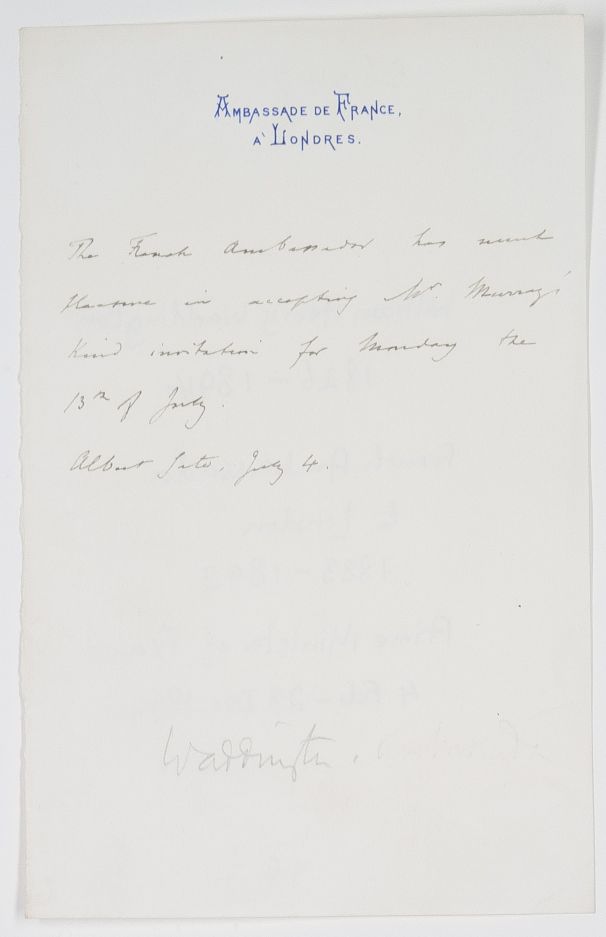 AMBASSADE DE FRANCE,
A' LONDRES.
The French Ambassador has much
pleasure in accepting Mr. Murray's
kind invitation for Monday the
13th of July.
Albert Gate, July 4.
Waddington.